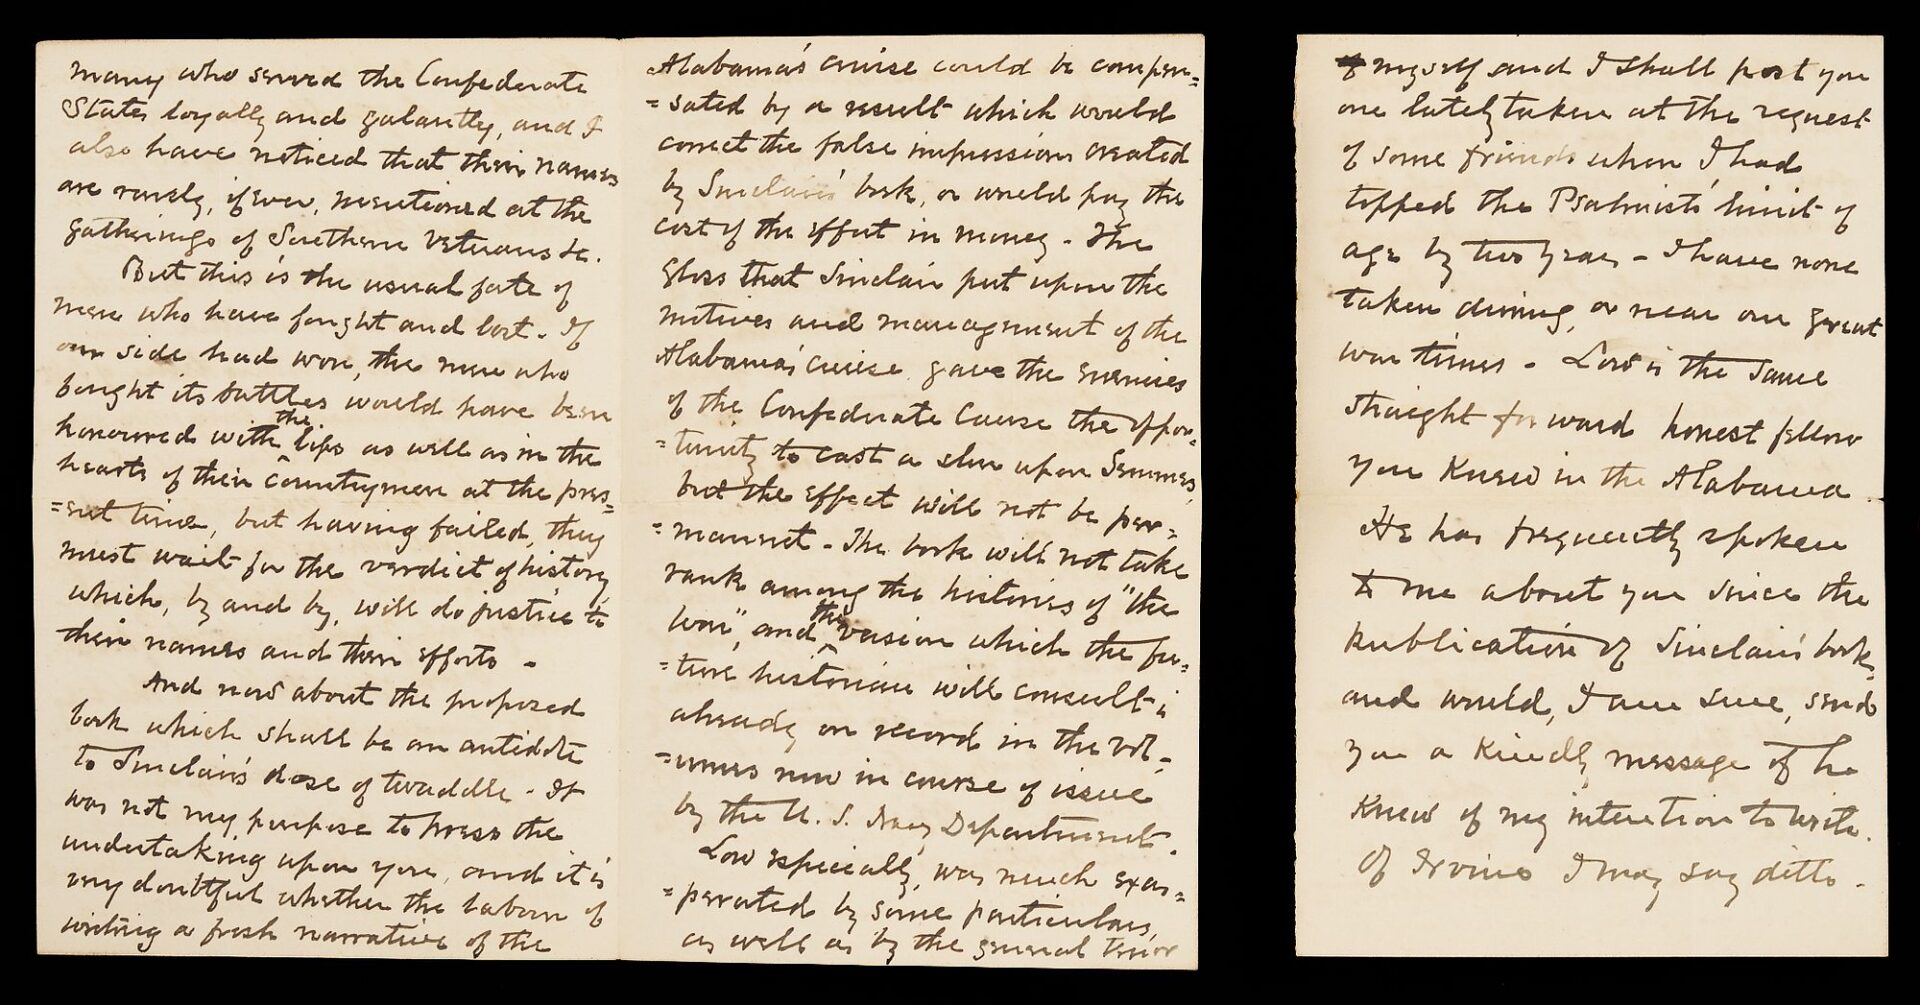 many who served the Confederate
States loyally and galantly, and I
also have noticed that their names
are rarely, if ever, mentioned at the
gatherings of Southern Veterans &c.
But this is the usual fate of
men who have fought and lost. If
our side had won, the men who
fought its battles would have been
honoured with the lips as well as in the
hearts of their Countrymen at the pres=
=ent time, but having failed, they
must wait for the verdict of history,
which, by and by, will do justice to
their names and their efforts -
And now about the proposed
book which shall be an antidote
to Sinclair's dose of twaddle. It
was not my purpose to press the
undertaking upon you, and it is
very doubtful whether the labour of
writing a fresh narrative of the
Alabama's cruise could be compen=
=sated by a result which would
correct the false impressions created
by Sinclair's book, or would pay the
cost of the effort in money - The
gloss that Sinclair put upon the
motives and management of the
Alabama's cruise gave the enemies
of the Confederate Cause the oppor=
=tunity to cast a slur upon Semmes,
but the effect will not be per=
=manent - The book will not take
rank among the histories of "the
War", and the version which the fu=
=ture historian will consult is
already on record in the vol=
=umes now in course of issue
by the U. S. Navy Department.
Low especially, was much exas=
=perated by some particulars,
as well as by the general tenor
of myself and I shall post you
one lately taken at the request
of some friends when I had
topped the Psalmist's limit of
age by two years - I have none
taken during, or near our great
war times - Low is the same
straight forward honest fellow
you knew in the Alabama -
He has frequently spoken
to me about you since the
publication of Sinclair's book,
and would, I am sure, send
you a kindly message if he
knew of my intention to write.
Of Irvine I may say ditto -